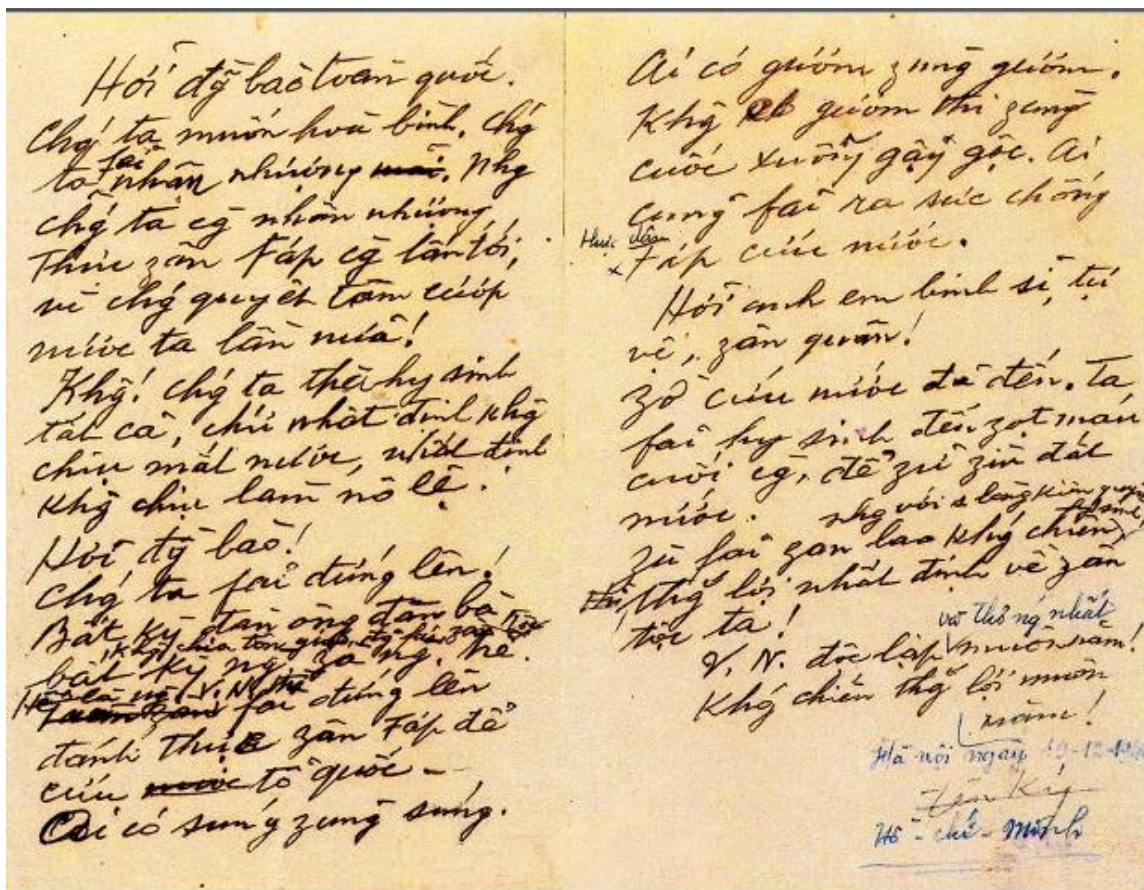 Hỡi đg̃ bào toàn quốc.
Chg' ta muốn hoà bình. Chg'
ta fải nhân nhượng. Nhg
chg' ta cg̀ nhân nhượng,
thực zân Fáp cg̀ lấn tới,
vì chg' quyết tâm cướp
nước ta lần nữa!
Khg! Chg' ta thà hy sinh
tất cả, chứ nhất định khg
chịu mất nước, nhất định
khg chịu làm nô lệ.
Hỡi đg̀ bào!
Chg' ta fải đứng lên!
Bất kỳ đàn ông đàn bà
bất kỳ ng. zà ng. trẻ.
Khg chia tôn giáo, đg̉ fái, zân tộc
Hễ là ng. V. N. thì fải đứng lên
đánh thực zân Fáp để
cứu tổ quốc –
Ai có súng zùng súng.
Ai có gươm zùng gươm.
Khg có gươm thì zùng
cuốc xuổng gậy gộc. Ai
cũng fải ra sức chống
thực dân Fáp cứu nước.
Hỡi anh em binh sĩ, tự
vệ, zân quân!
Zờ cứu nước đã đến. Ta
fải hy sinh đến zọt máu
cuối cg̀, để zữ zìn đất
nước.
Zù fải zan lao khg' chiến,
nhg với 1 lòng kiên quyết hy sinh,
thg' lợi nhất định về zân
tộc ta!
V. N. độc lập và thống nhất muôn năm!
Khg' chiến thg' lợi muôn
năm!
Hà nội ngày 19-12-1946
Hồ-chí-Minh